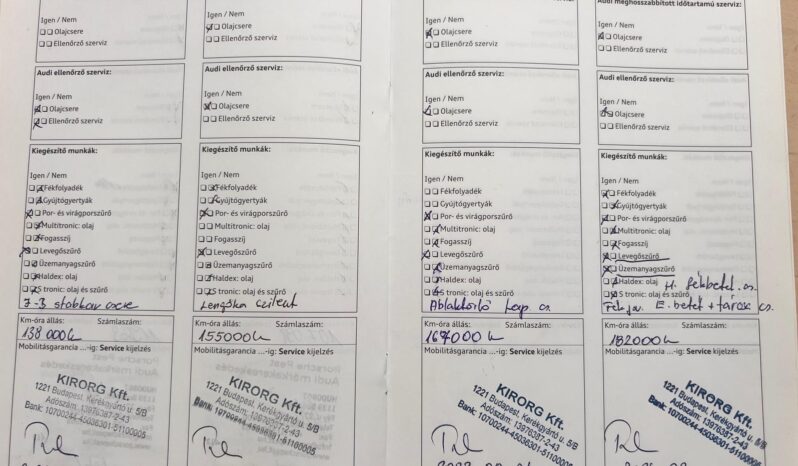 Igen / Nem
Olajcsere
Ellenőrző szerviz
Audi ellenőrző szerviz:
Igen / Nem
Olajcsere
Ellenőrző szerviz
Kiegészítő munkák:
Igen / Nem
Fékfolyadék
Gyújtógyertyák
Por- és virágporszűrő
Multitronic: olaj
Fogasszíj
Levegőszűrő
Üzemanyagszűrő
Haldex: olaj
S tronic: olaj és szűrő
Km-óra állás: Számlaszám:
138 000
Mobilitásgarancia ...-ig: Service kijelzés
KIRORG Kft.
1221 Budapest, Kerékgyártó u. 5/B
Adószám: 13976387-2-43
Bank: 10700244-45036301-51100005
Igen / Nem
Olajcsere
Ellenőrző szerviz
Audi ellenőrző szerviz:
Igen / Nem
Olajcsere
Ellenőrző szerviz
Kiegészítő munkák:
Igen / Nem
Fékfolyadék
Gyújtógyertyák
Por- és virágporszűrő
Multitronic: olaj
Fogasszíj
Levegőszűrő
Üzemanyagszűrő
Haldex: olaj
S tronic: olaj és szűrő
Km-óra állás: Számlaszám:
155000
Mobilitásgarancia ...-ig: Service kijelzés
KIRORG Kft.
1221 Budapest, Kerékgyártó u. 5/B
Adószám: 13976387-2-43
Bank: 10700244-45036301-51100005
Igen / Nem
Olajcsere
Ellenőrző szerviz
Audi ellenőrző szerviz:
Igen / Nem
Olajcsere
Ellenőrző szerviz
Kiegészítő munkák:
Igen / Nem
Fékfolyadék
Gyújtógyertyák
Por- és virágporszűrő
Multitronic: olaj
Fogasszíj
Levegőszűrő
Üzemanyagszűrő
Haldex: olaj
S tronic: olaj és szűrő
Ablaktörlő lap cs.
Km-óra állás: Számlaszám:
167000
Mobilitásgarancia ...-ig: Service kijelzés
KIRORG Kft.
1221 Budapest, Kerékgyártó u. 5/B
Adószám: 13976387-2-43
Bank: 10700244-45036301-51100005
Audi meghosszabbított időtartamú szerviz:
Igen / Nem
Olajcsere
Ellenőrző szerviz
Audi ellenőrző szerviz:
Igen / Nem
Olajcsere
Ellenőrző szerviz
Kiegészítő munkák:
Igen / Nem
Fékfolyadék
Gyújtógyertyák
Por- és virágporszűrő
Multitronic: olaj
Fogasszíj
Levegőszűrő
Üzemanyagszűrő
Haldex: olaj H. fékbetét cs.
S tronic: olaj és szűrő
E. betét + tárcsa cs.
Km-óra állás: Számlaszám:
182000
Mobilitásgarancia ...-ig: Service kijelzés
KIRORG Kft.
1221 Budapest, Kerékgyártó u. 5/B
Adószám: 13976387-2-43
Bank: 10700244-45036301-51100005